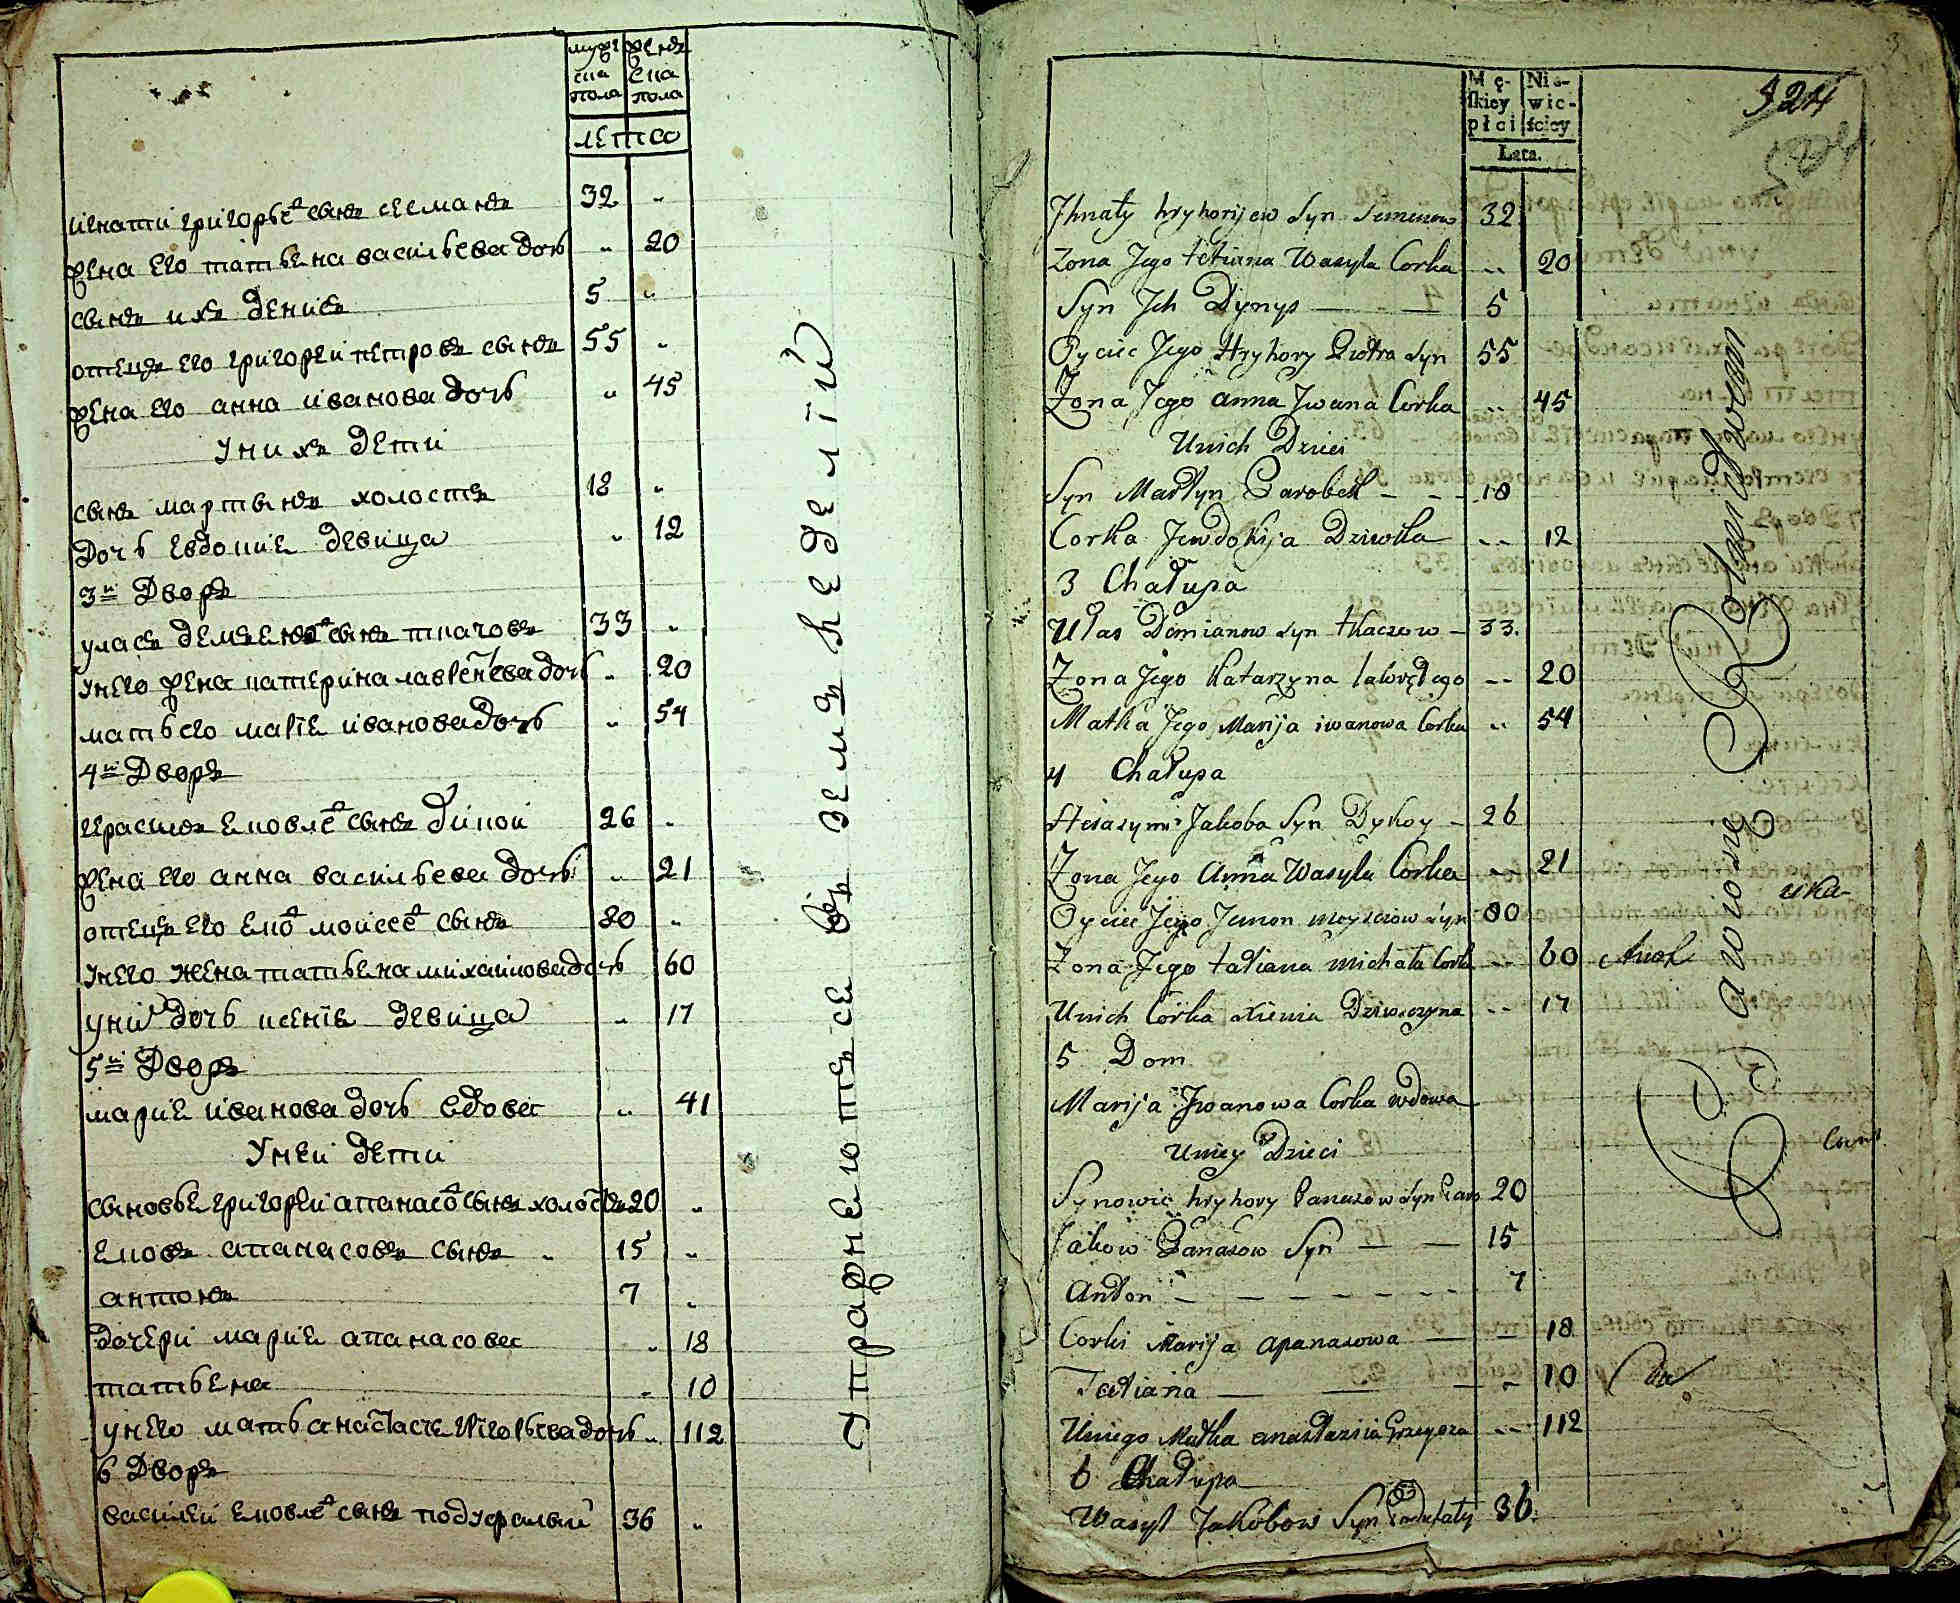 мужеска пола
женска пола
лета
игнатіи григорьевъ сынъ семанъ 32 „
жена его татьяна васильева дочь „ 20
сынъ ихъ денисъ 5 „
отецъ его григореи петровъ сынъ 55 „
жена его анна иванова дочь „ 45
у нихъ дети
сынъ мартынъ холостъ 18 „
дочь евдокия девица „ 12
3й дворъ
уласъ демьяновъ сынъ ткачовъ 33 „
у него жена катерина лаврентьева дочь „ 20
мать его марія иванова дочь „ 54
4й дворъ
герасимъ яковлевъ сынъ дикои 26 „
жена его анна васильева дочь „ 21
отецъ его моисеевъ сынъ 80 „
у него жена татьяна михаилова дочь 60
у ній дочь ксенія девица „ 17
5й дворъ
мария иванова дочь вдова „ 41
у неи дети
сыновья григореи апанасовъ сынъ холостъ 20 „
яковъ апанасовъ сынъ „ 15 „
антонъ 7 „
дочери мария апанасова „ 18
татьяна „ 10
у него мать анастасія григорьева дочь „ 112
6 дворъ
василеи яковлевъ сынъ подуфалыи 36 „
Упражняются въ земледелій
Męskiey płci
Niewieściey
Lata.
324
Jhnaty hryhorijew Syn Semenow 32
Zona Jego tetiana Wasyla Corka „ 20
Syn Jch Dynys — — 5
Oyciec Jego Hryhory Piotra Syn 55
Zona Jego anna Jwana Corka „ 45
Unich Dzieci
Syn Martyn Parobek - - - 18
Corka Jewdokija Dziewka - - 12
3 Chałupa
Ułas Demianow Syn tkaczow - 33.
Zona Jego Katarzyna -- 20
Matka Jego Marija iwanowa Corka „ 54
4 Chałupa
Herasym Jakoba Syn Dykoy - 26
Zona Jego Anna Wasyla Corka -- 21
Oyciec Jego Syn 80
Zona Jego tatiana michała Corka -- 60
Unich Corka xienia Dziewczyna -- 17
5 Dom
Marija Jwanowa Corka wdowa
Uniey Dzieci
Synowie hryhory Panasow Syn 20
Jakow Panasow Syn — — 15
Anton — — — — 7
Corki Marija apanasowa — 18
Tatiana — — — 10
Uniego Matka anastazia Grzegorza -- 112
6 Chałupa
Wasyl Jakobow Syn 36.
Rolnictwem